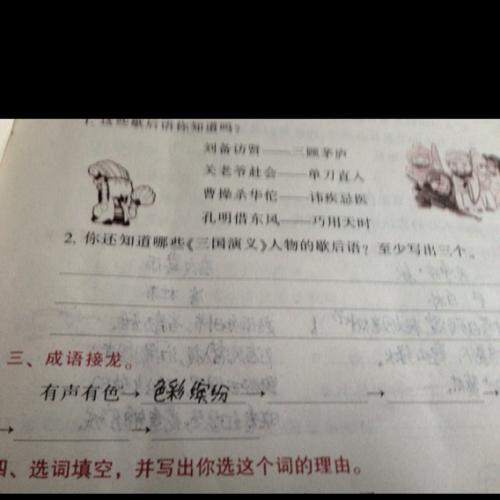 1. 这些歇后语你知道吗？
刘备访贤——三顾茅庐
关老爷赴会——单刀直入
曹操杀华佗——讳疾忌医
孔明借东风——巧用天时
2. 你还知道哪些《三国演义》人物的歇后语？至少写出三个。
三、成语接龙。
有声有色→色彩缤纷→→
→→
四、选词填空，并写出你选这个词的理由。